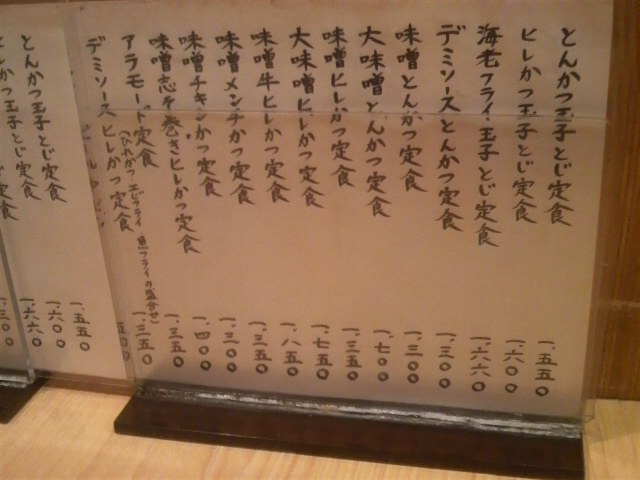 とんかつ玉子とじ定食 一、五五〇
ヒレかつ玉子とじ定食 一、六〇〇
海老フライ・玉子とじ定食 一、六六〇
デミソースとんかつ定食 一、三〇〇
味噌とんかつ定食 一、三〇〇
大味噌とんかつ定食 一、七〇〇
味噌ヒレかつ定食 一、三五〇
大味噌ヒレかつ定食 一、七五〇
味噌牛ヒレかつ定食 一、八五〇
味噌メンチかつ定食 一、三五〇
味噌チキンかつ定食 一、三〇〇
味噌志そ巻きヒレかつ定食 一、四〇〇
アラモード定食 一、三五〇
(ひれかつ エビフライ 魚フライの盛合せ)
デミソースヒレかつ定食 一、三五〇
五〇〇
一、五五〇
とんかつ玉子とじ定食 一、六〇〇
かつ玉子とじ定食 一、六六〇
とじ定食 一、三〇〇